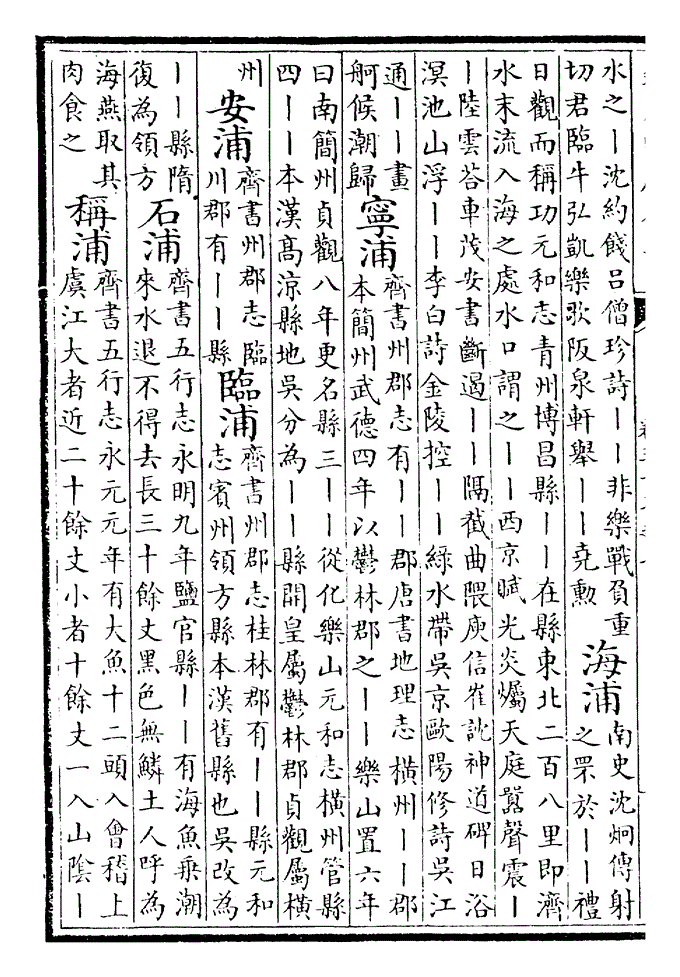 水之丨沈約餞吕僧珍詩丨丨非樂戰負重
切君臨牛弘凱樂歌阪泉軒舉丨丨堯勲
海浦
南史沈炯傳射
之罘於丨丨禮
日觀而稱功元和志青州博昌縣丨丨在縣東北二百八里即濟
水末流入海之處水口謂之丨丨西京賦光炎爥天庭囂聲震丨
丨陸雲荅車茂安書斷遏丨丨隔截曲隈庾信崔訦神道碑日浴
溟池山浮丨丨李白詩金陵控丨丨綠水帶吳京歐陽修詩吳江
通丨丨畫
舸候潮歸
寧浦
齊書州郡志有丨丨郡唐書地理志橫州丨丨郡
本簡州武德四年以鬱林郡之丨丨樂山置六年
曰南簡州貞觀八年更名縣三丨丨從化樂山元和志橫州管縣
四丨丨本漢高涼縣地吳分為丨丨縣開皇屬鬱林郡貞觀屬橫
州
安浦
齊書州郡志臨
川郡有丨丨縣
臨浦
齊書州郡志桂林郡有丨丨縣元和
志賓州領方縣本漢舊縣也吳改為
丨丨縣隋
復為領方
石浦
齊書五行志永明九年鹽官縣丨丨有海魚乘潮
來水退不得去長三十餘丈黑色無鱗土人呼為
海燕取其
肉食之
稱浦
齊書五行志永元元年有大魚十二頭入會稽上
虞江大者近二十餘丈小者十餘丈一入山陰丨